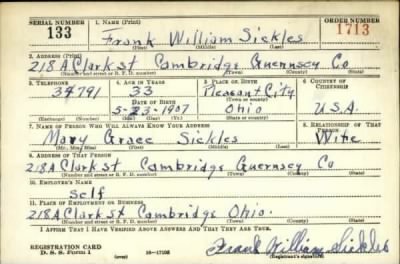 SERIAL NUMBER 1. NAME (Print) ORDER NUMBER
133 Frank William Sickles 1713
(First) (Middle) (Last)
2. ADDRESS (Print)
218A Clark st Cambridge Guernsey Co
(Number and street or R. F. D. number) (Town) (County) (State)
3. TELEPHONE 4. AGE IN YEARS 5. PLACE OF BIRTH 6. COUNTRY OF CITIZENSHIP
34791 33 Pleasant City
DATE OF BIRTH (Town or county)
5-23-1907 Ohio U.S.A.
(Exchange) (Number) (Mo.) (Day) (Yr.) (State or country)
7. NAME OF PERSON WHO WILL ALWAYS KNOW YOUR ADDRESS 8. RELATIONSHIP OF THAT PERSON
Mary Grace Sickles Wife
(Mr., Mrs., Miss) (First) (Middle) (Last)
9. ADDRESS OF THAT PERSON
218A Clark st Cambridge Guernsey Co
(Number and street or R. F. D. number) (Town) (County) (State)
10. EMPLOYER'S NAME
Self
11. PLACE OF EMPLOYMENT OR BUSINESS
218A Clark st Cambridge Ohio.
(Number and street or R. F. D. number) (Town) (County) (State)
I AFFIRM THAT I HAVE VERIFIED ABOVE ANSWERS AND THAT THEY ARE TRUE.
Frank William Sickles
REGISTRATION CARD
D. S. S. Form 1 16-17105 (Registrant's signature)